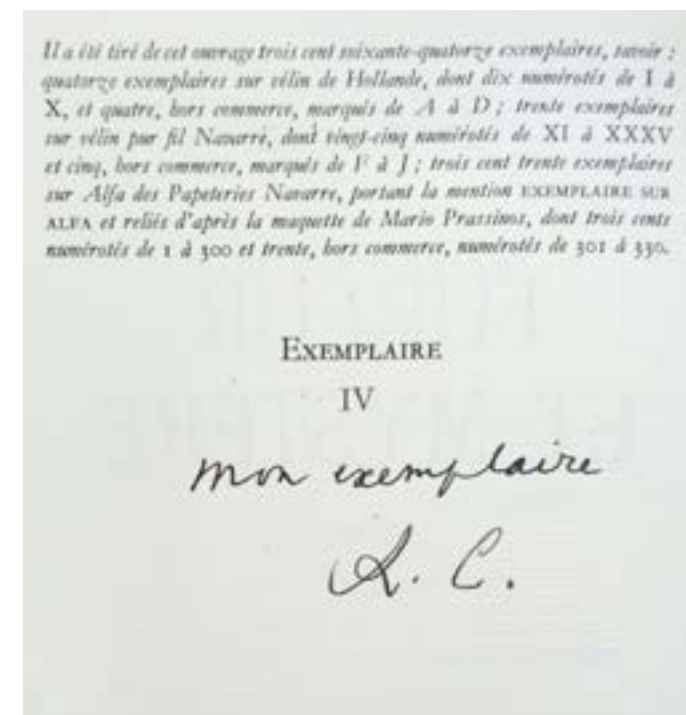 Il a été tiré de cet ouvrage trois cent soixante-quatorze exemplaires, savoir :
quatorze exemplaires sur vélin de Hollande, dont dix numérotés de I à
X, et quatre, hors commerce, marqués de A à D ; trente exemplaires
sur vélin pur fil Navarre, dont vingt-cinq numérotés de XI à XXXV
et cinq, hors commerce, marqués de F à J ; trois cent trente exemplaires
sur Alfa des Papeteries Navarre, portant la mention EXEMPLAIRE SUR
ALFA et reliés d'après la maquette de Mario Prassinos, dont trois cents
numérotés de 1 à 300 et trente, hors commerce, numérotés de 301 à 330.
EXEMPLAIRE
IV
mon exemplaire
R. C.